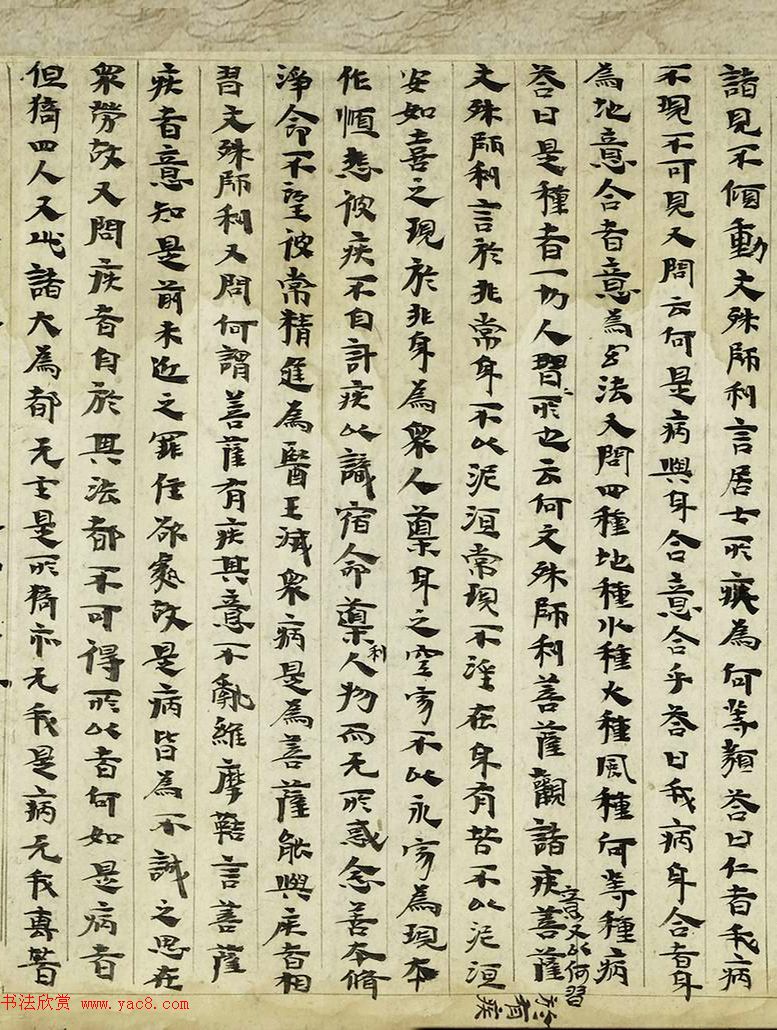 諸見不傾動文殊師利言居士所疾為何等類荅曰仁者我病
不現不可見又問云何是病與身合意合乎荅曰我病身合者身
為地意合者意為幻法又問四種地種水種火種風種何等種病
荅曰是種者一切人習所也云何文殊師利菩薩觀諸疾菩薩
意又以何習
於有疾
文殊師利言於非常身不以泥洹常現不婬在身有苦不以泥洹
安如喜之現於非身為衆人導身之空寂不以永寂為現本
作恒悲彼疾不自計疾以識宿命導人物而无所惑念善本脩
利
淨命不望彼常精進為醫王滅衆病是為菩薩能與疾者相
習文殊師利又問何謂菩薩有疾其意不亂維摩詰言菩薩
疾者意知是前未近之罪住欲處故是病皆為不誠之思在
衆勞故又問疾者自於其法都不可得所以者何如是病者
但猗四人又此諸大為都无主是所猗亦无我是病无我專著
书法欣赏 www.yac8.com